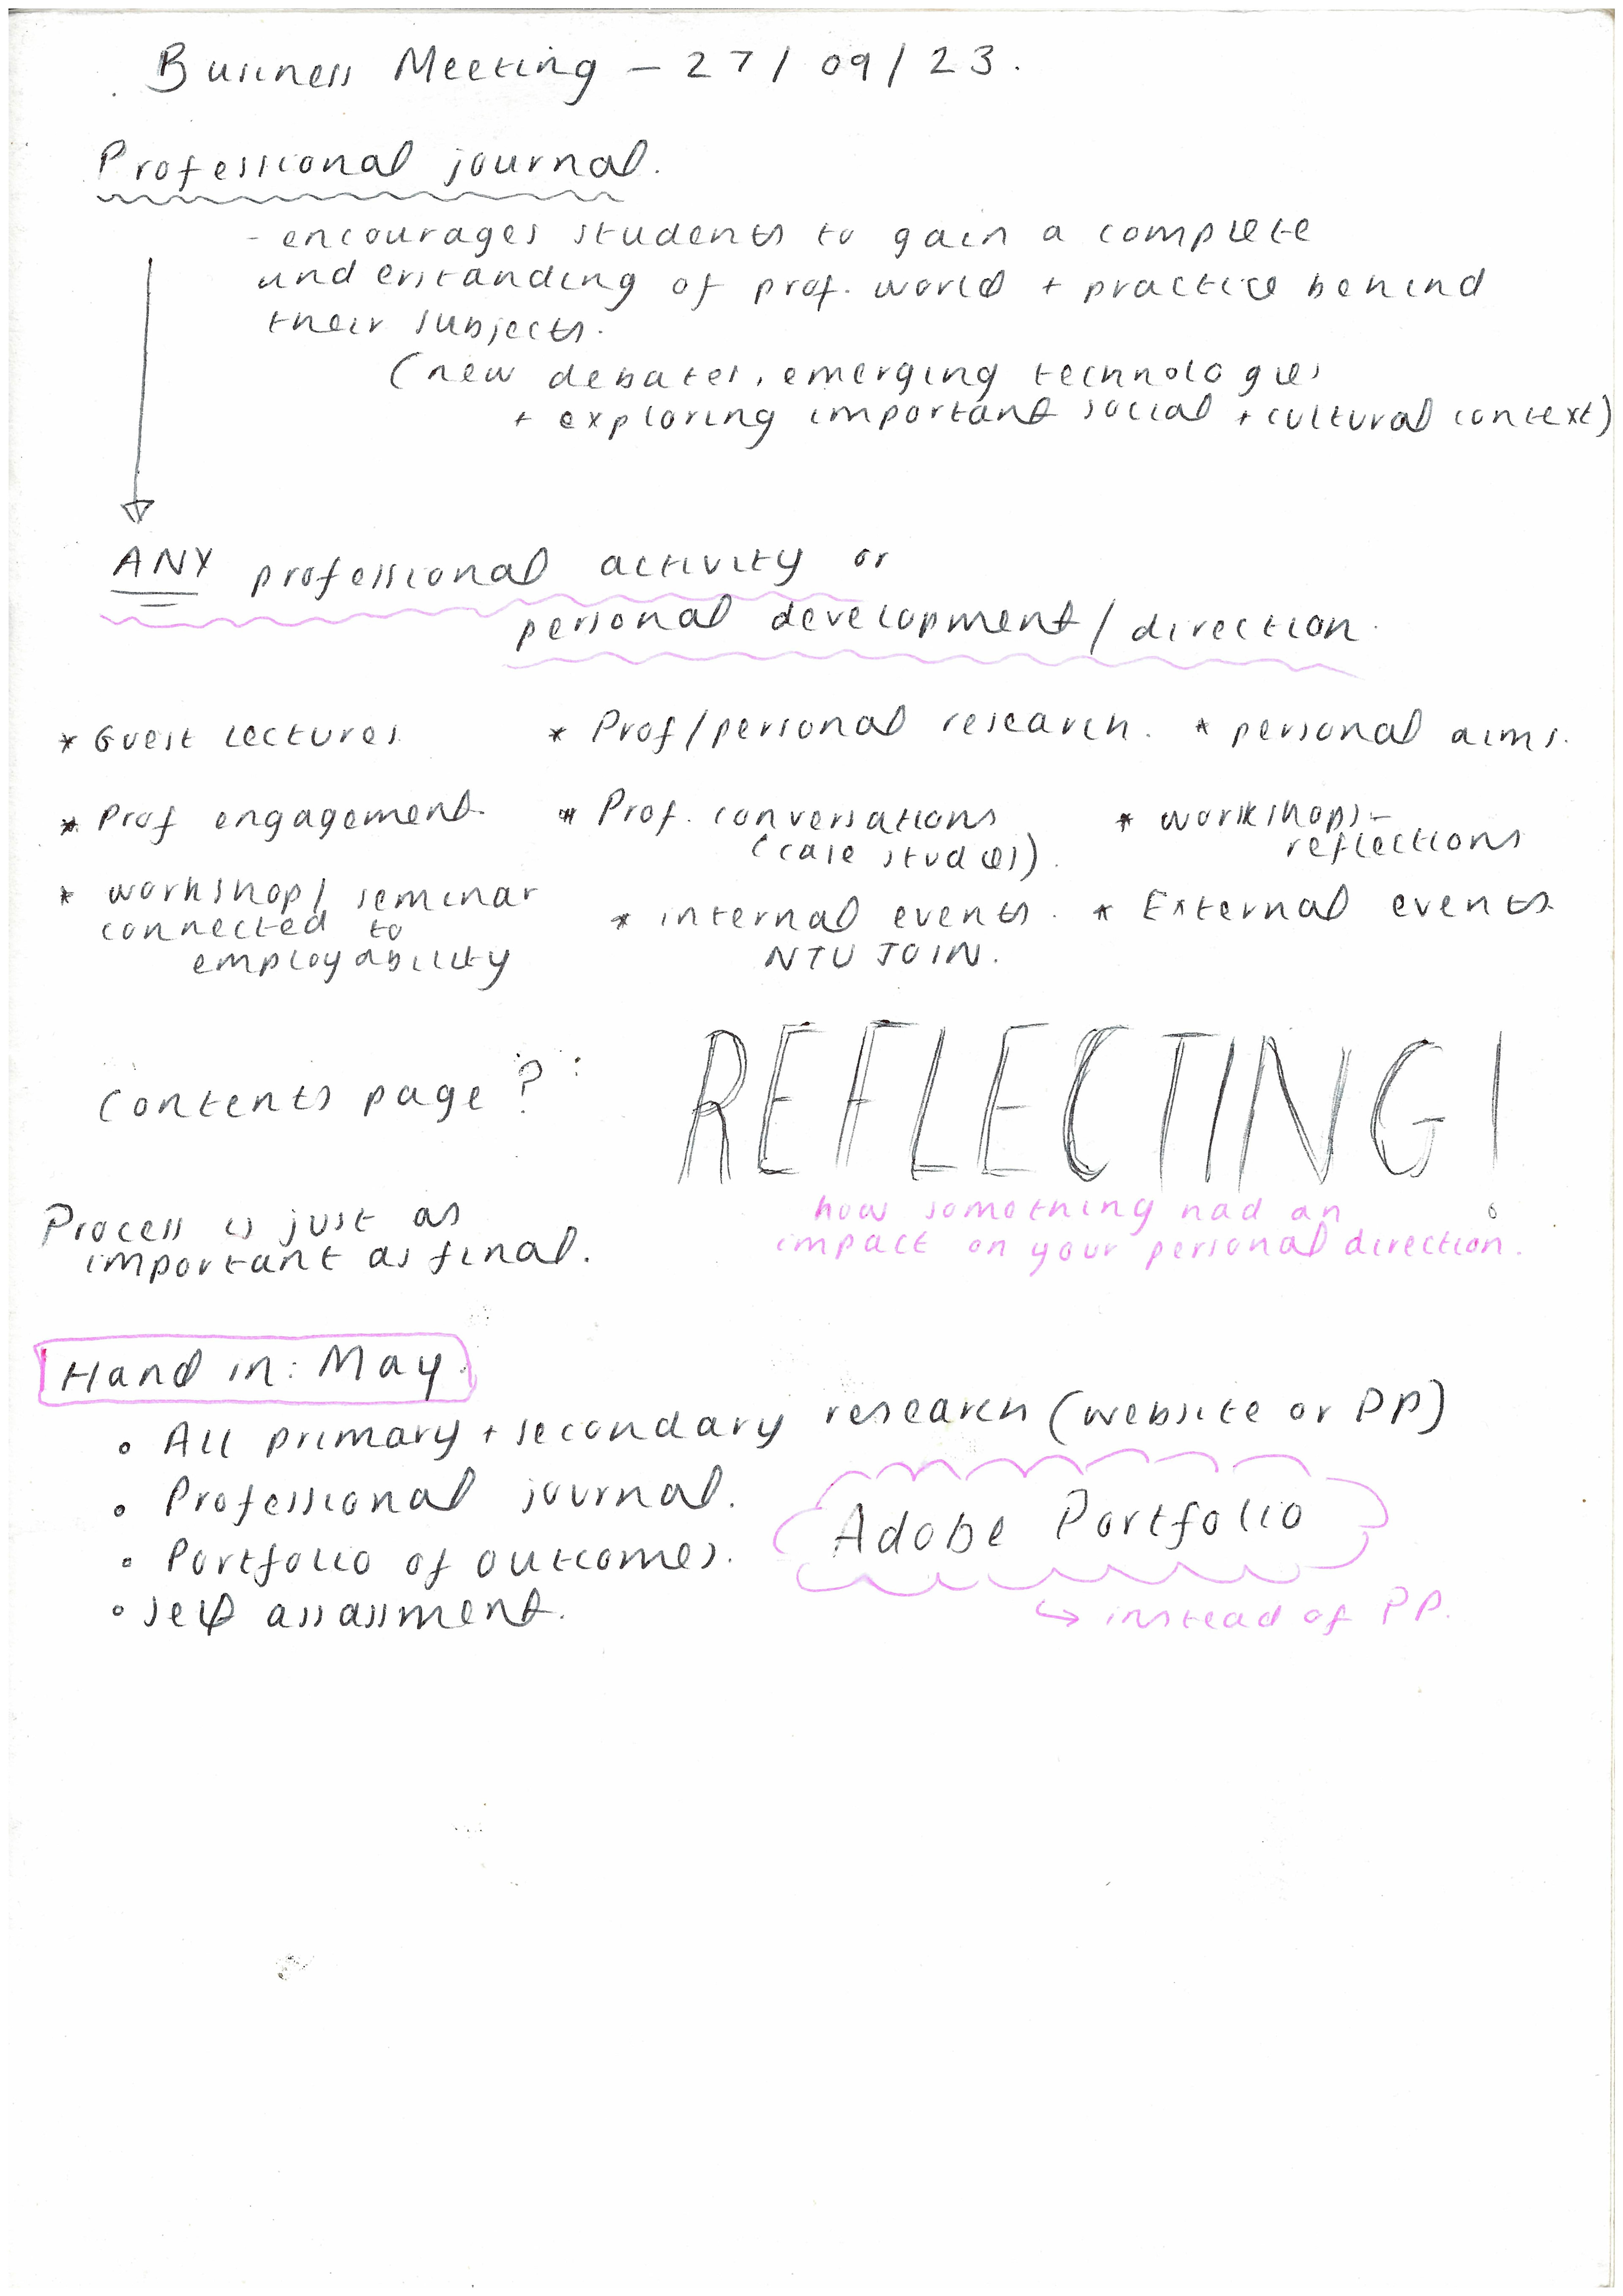 Business Meeting - 27/09/23.
Professional journal.
- encourages students to gain a complete
understanding of prof. world + practice behind
their subjects.
(new debates, emerging technologies
+ exploring important social + cultural context)
ANY professional activity or
personal development/direction.
* Guest lectures
* Prof/personal research.
* personal aims.
* Prof engagement.
* Prof. conversations
(case studies).
* workshops -
reflections
* workshop/seminar
connected to
employability
* internal events.
NTU JOIN.
* External events.
Contents page?
REFLECTING!
how somothing had an
impact on your personal direction.
Process is just as
important as final.
Hand in: May.
• All primary + secondary research (website or PP)
• Professional journal.
• Portfolio of outcomes.
• self assassment.
Adobe Portfolio
↳ instead of PP.